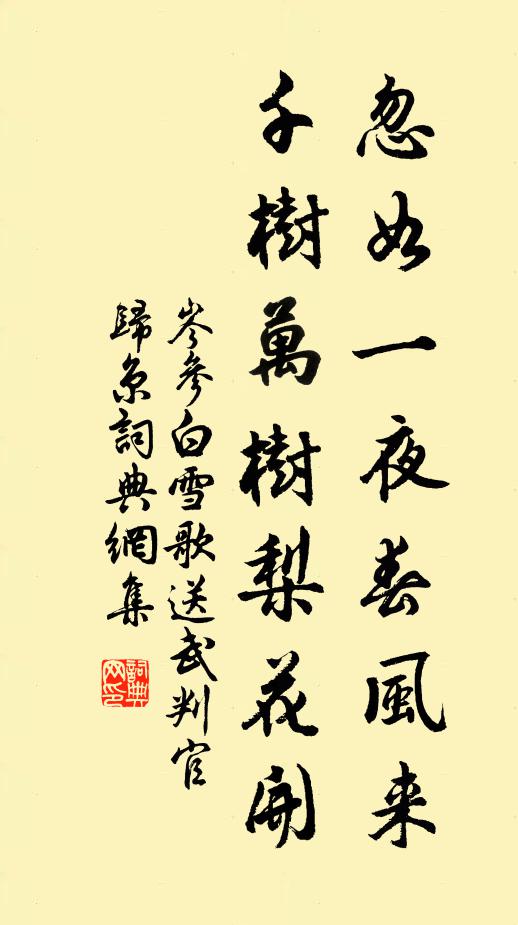 忽如一夜春風来
千樹萬樹梨花開
岑參白雪歌送武判官
歸京詞典網集
詞典
网印